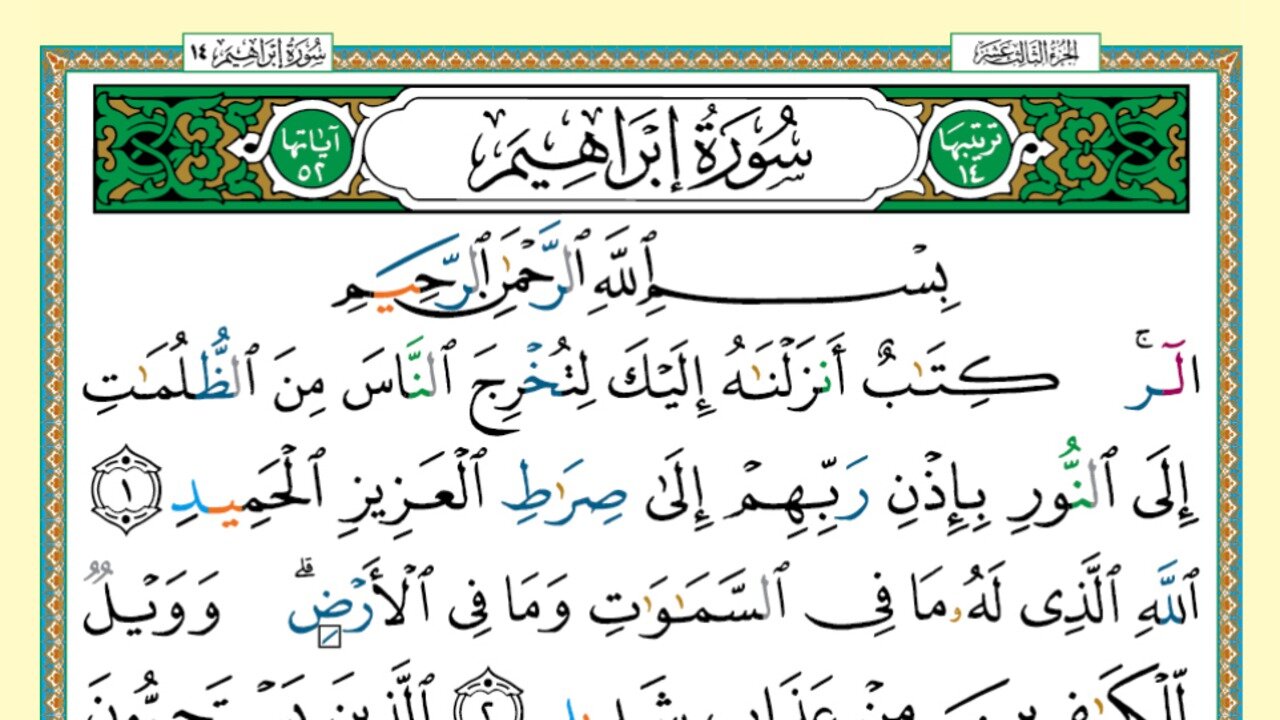 الجزء الثالث عشر
سورة إبراهيم ١٤
ترتيبها ١٤
سُورَةُ إِبْرَاهِيم
آياتها ٥٢
بِسْمِ ٱللَّهِ ٱلرَّحْمَٰنِ ٱلرَّحِيمِ
الٓر ۚ كِتَٰبٌ أَنزَلْنَٰهُ إِلَيْكَ لِتُخْرِجَ ٱلنَّاسَ مِنَ ٱلظُّلُمَٰتِ
إِلَى ٱلنُّورِ بِإِذْنِ رَبِّهِمْ إِلَىٰ صِرَٰطِ ٱلْعَزِيزِ ٱلْحَمِيدِ ١
ٱللَّهِ ٱلَّذِى لَهُۥ مَا فِى ٱلسَّمَٰوَٰتِ وَمَا فِى ٱلْأَرْضِ ۗ وَوَيْلٌ
لِّلْكَٰفِرِينَ مِنْ عَذَابٍ شَدِيدٍ ٢ ٱلَّذِينَ يَسْتَحِبُّونَ